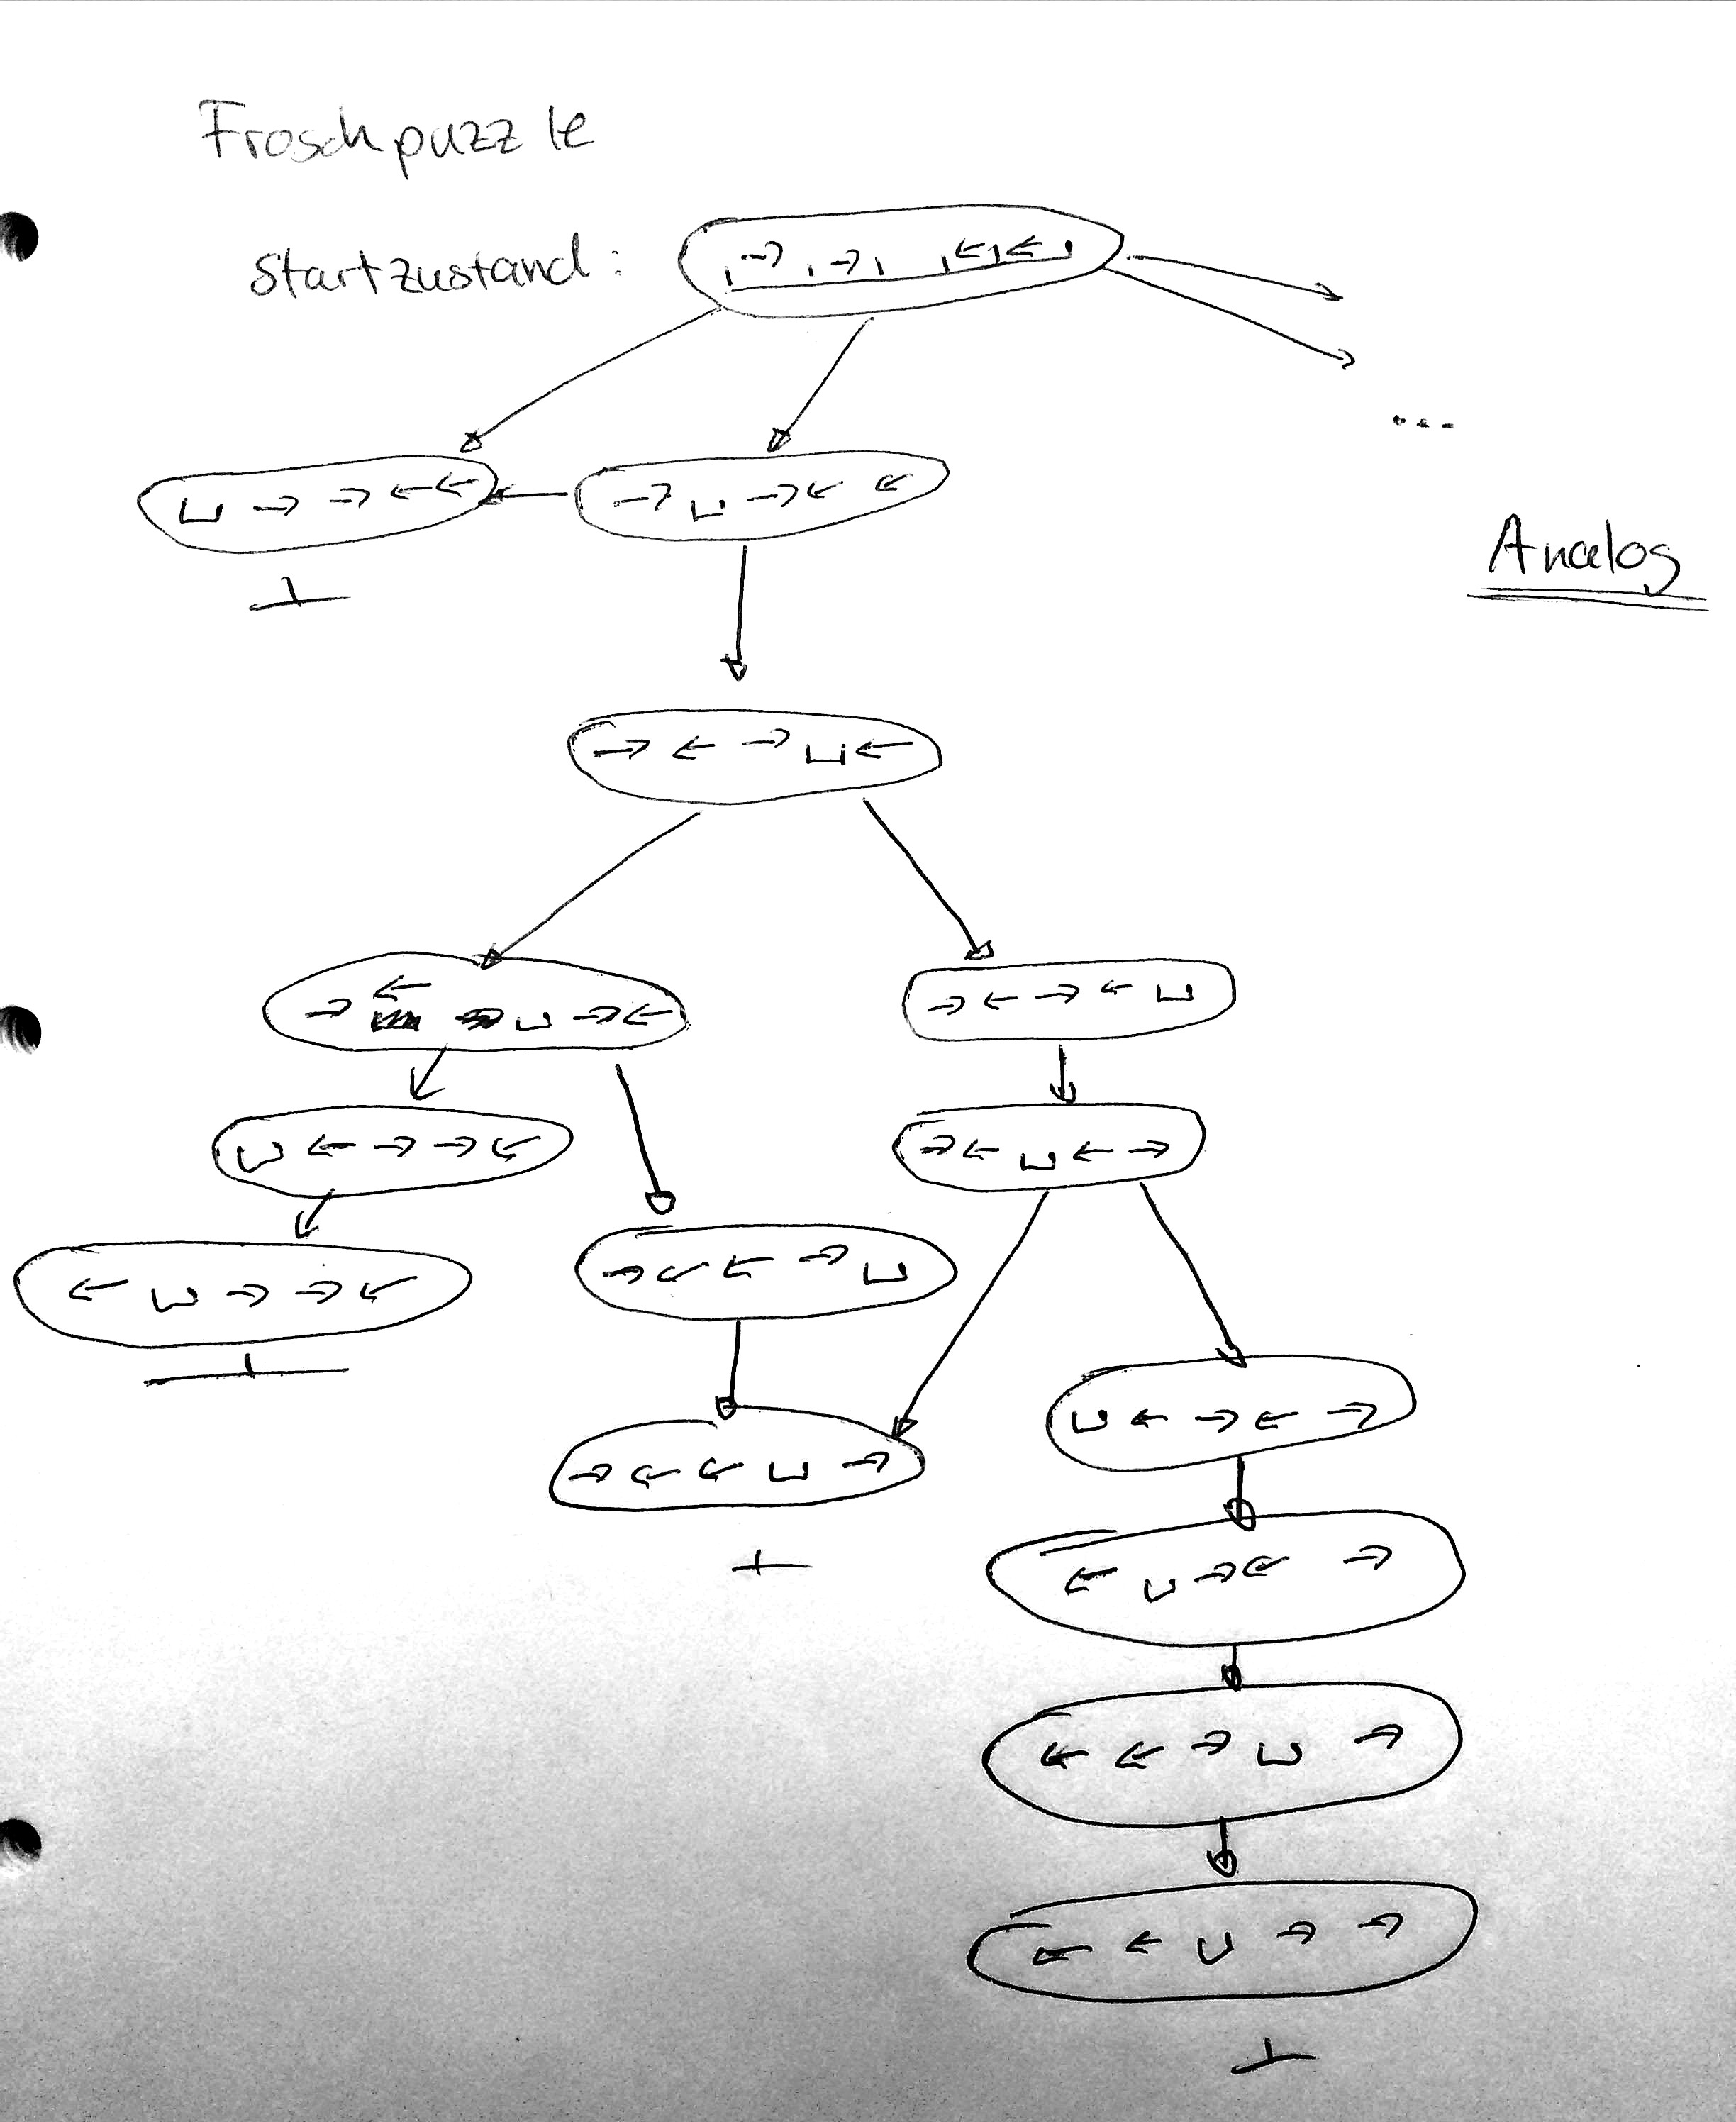 Froschpuzzle
Startzustand: → → ← ←
...
⊔ → → ← ←
→ ⊔ → ← ←
Analog
⊥
→ ← → ⊔ ←
→ ← ⊔ → ←
→ ← → ← ⊔
⊔ ← → → ←
→ ← ⊔ ← →
← ⊔ → → ←
→ ← ← → ⊔
⊥
⊔ ← → ← →
→ ← ← ⊔ →
⊥
← ⊔ → ← →
← ← → ⊔ →
← ← ⊔ → →
⊥